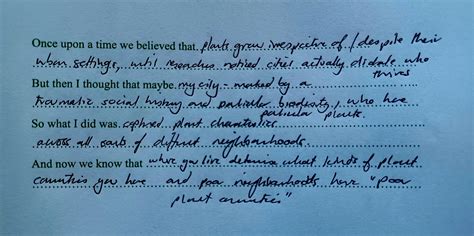 Once upon a time we believed that plants grew irrespective of / despite their
urban settings, until researches noticed cities actually dictate who
thrives
But then I thought that maybe my city, marked by a
traumatic social history and particular biodiversity, who here
particular plants
So what I did was explored plant characteristics
across all sorts of different neighbourhoods.
And now we know that where you live determines what kinds of plant
communities you have and poor neighbourhoods have "poor
plant communities"